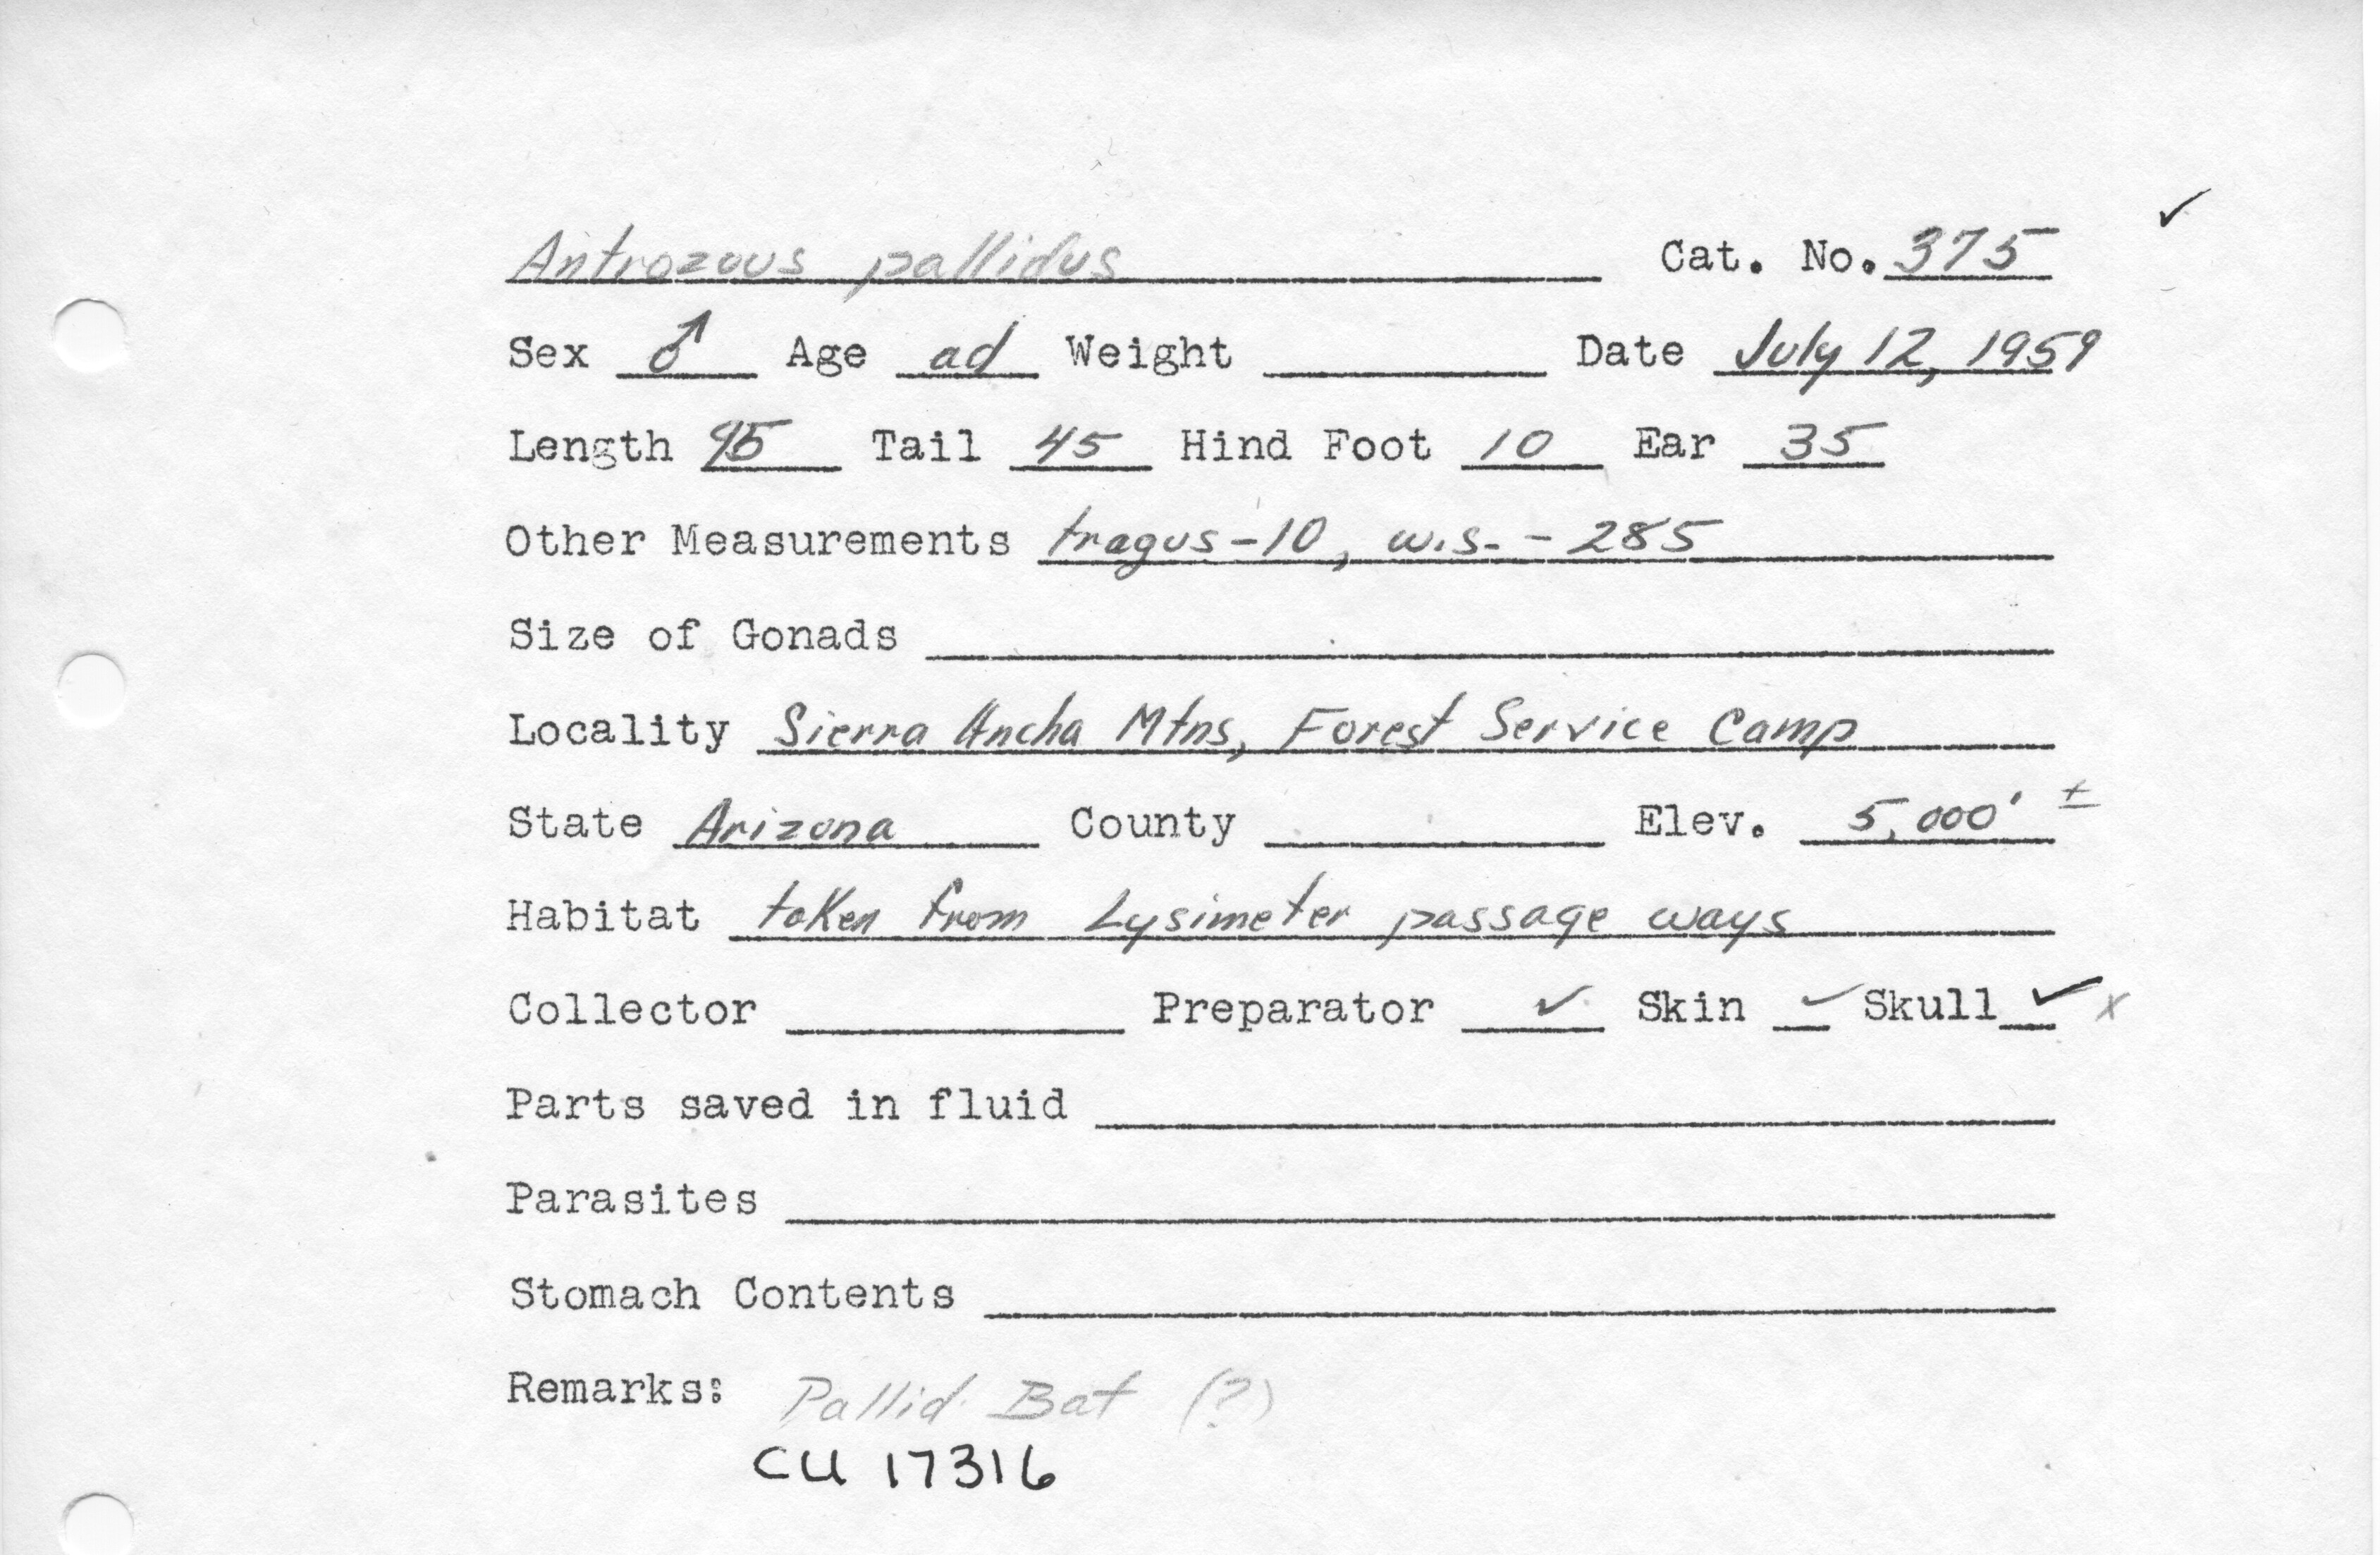 Antrozous pallidus Cat. No. 375 ✓
Sex ♂ Age ad Weight Date July 12, 1959
Length 95 Tail 45 Hind Foot 10 Ear 35
Other Measurements tragus-10, w.s. - 285
Size of Gonads
Locality Sierra Ancha Mtns, Forest Service Camp
State Arizona County Elev. 5,000' ±
Habitat taken from Lysimeter passage ways
Collector Preparator ✓ Skin ✓ Skull ✓ x
Parts saved in fluid
Parasites
Stomach Contents
Remarks: Pallid Bat (?)
CU 17316